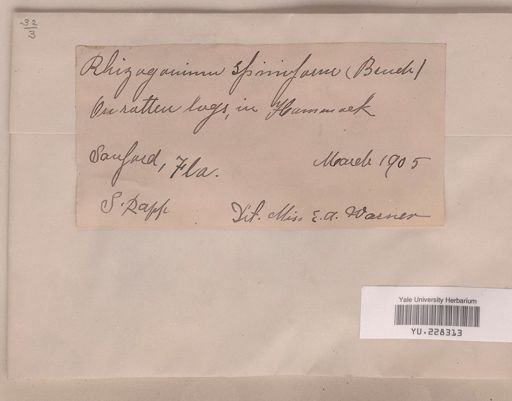 32
3
Rhizogonium spiniforme (Bruch)
On rotten logs, in Hammock
Sanford, Fla. March 1905
S. Rapp Det. Miss E. A. Warner
Yale University Herbarium
YU.228313